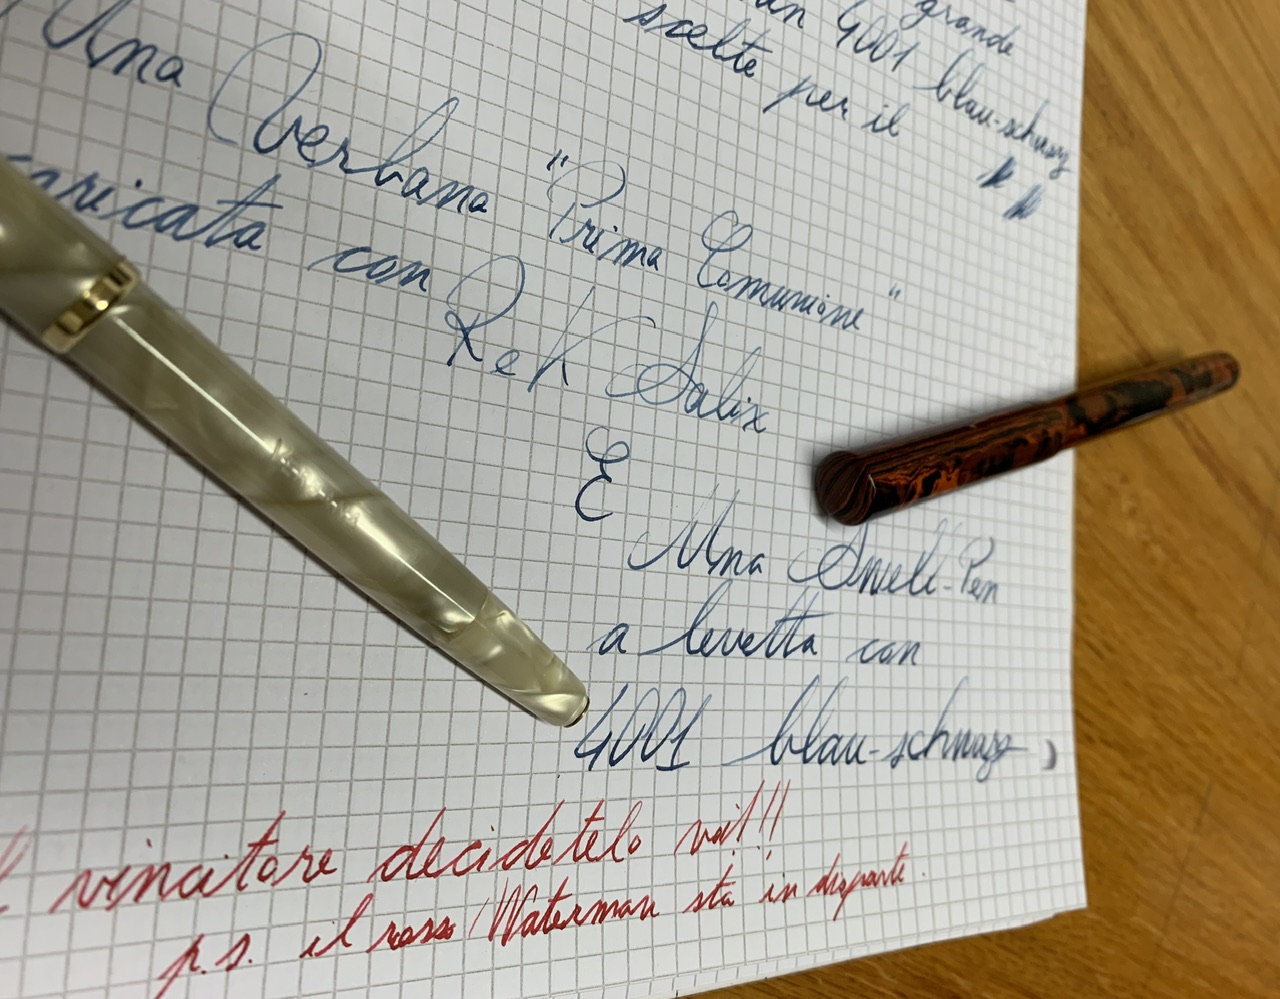 grande
4001 blau-schwarz
scelte per il
Una Verbana "Prima Comunione"
caricata con R&K Salix
E
Una Swell-Pen
a levetta con
4001 blau-schwarz
vincitore decidetelo voi!!!
p.s. il rosso Waterman sta in disparte.